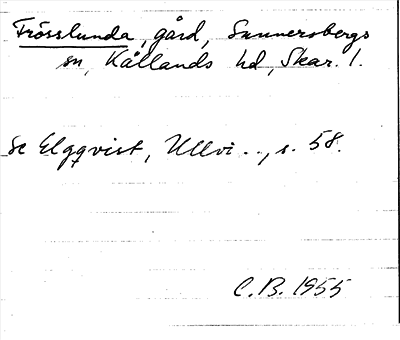 Frösslunda, gård, Sunnersbergs
sn, Kållands hd, Skar. l.
Se Elgqvist, Ullvi.., s. 58.
C.B. 1955